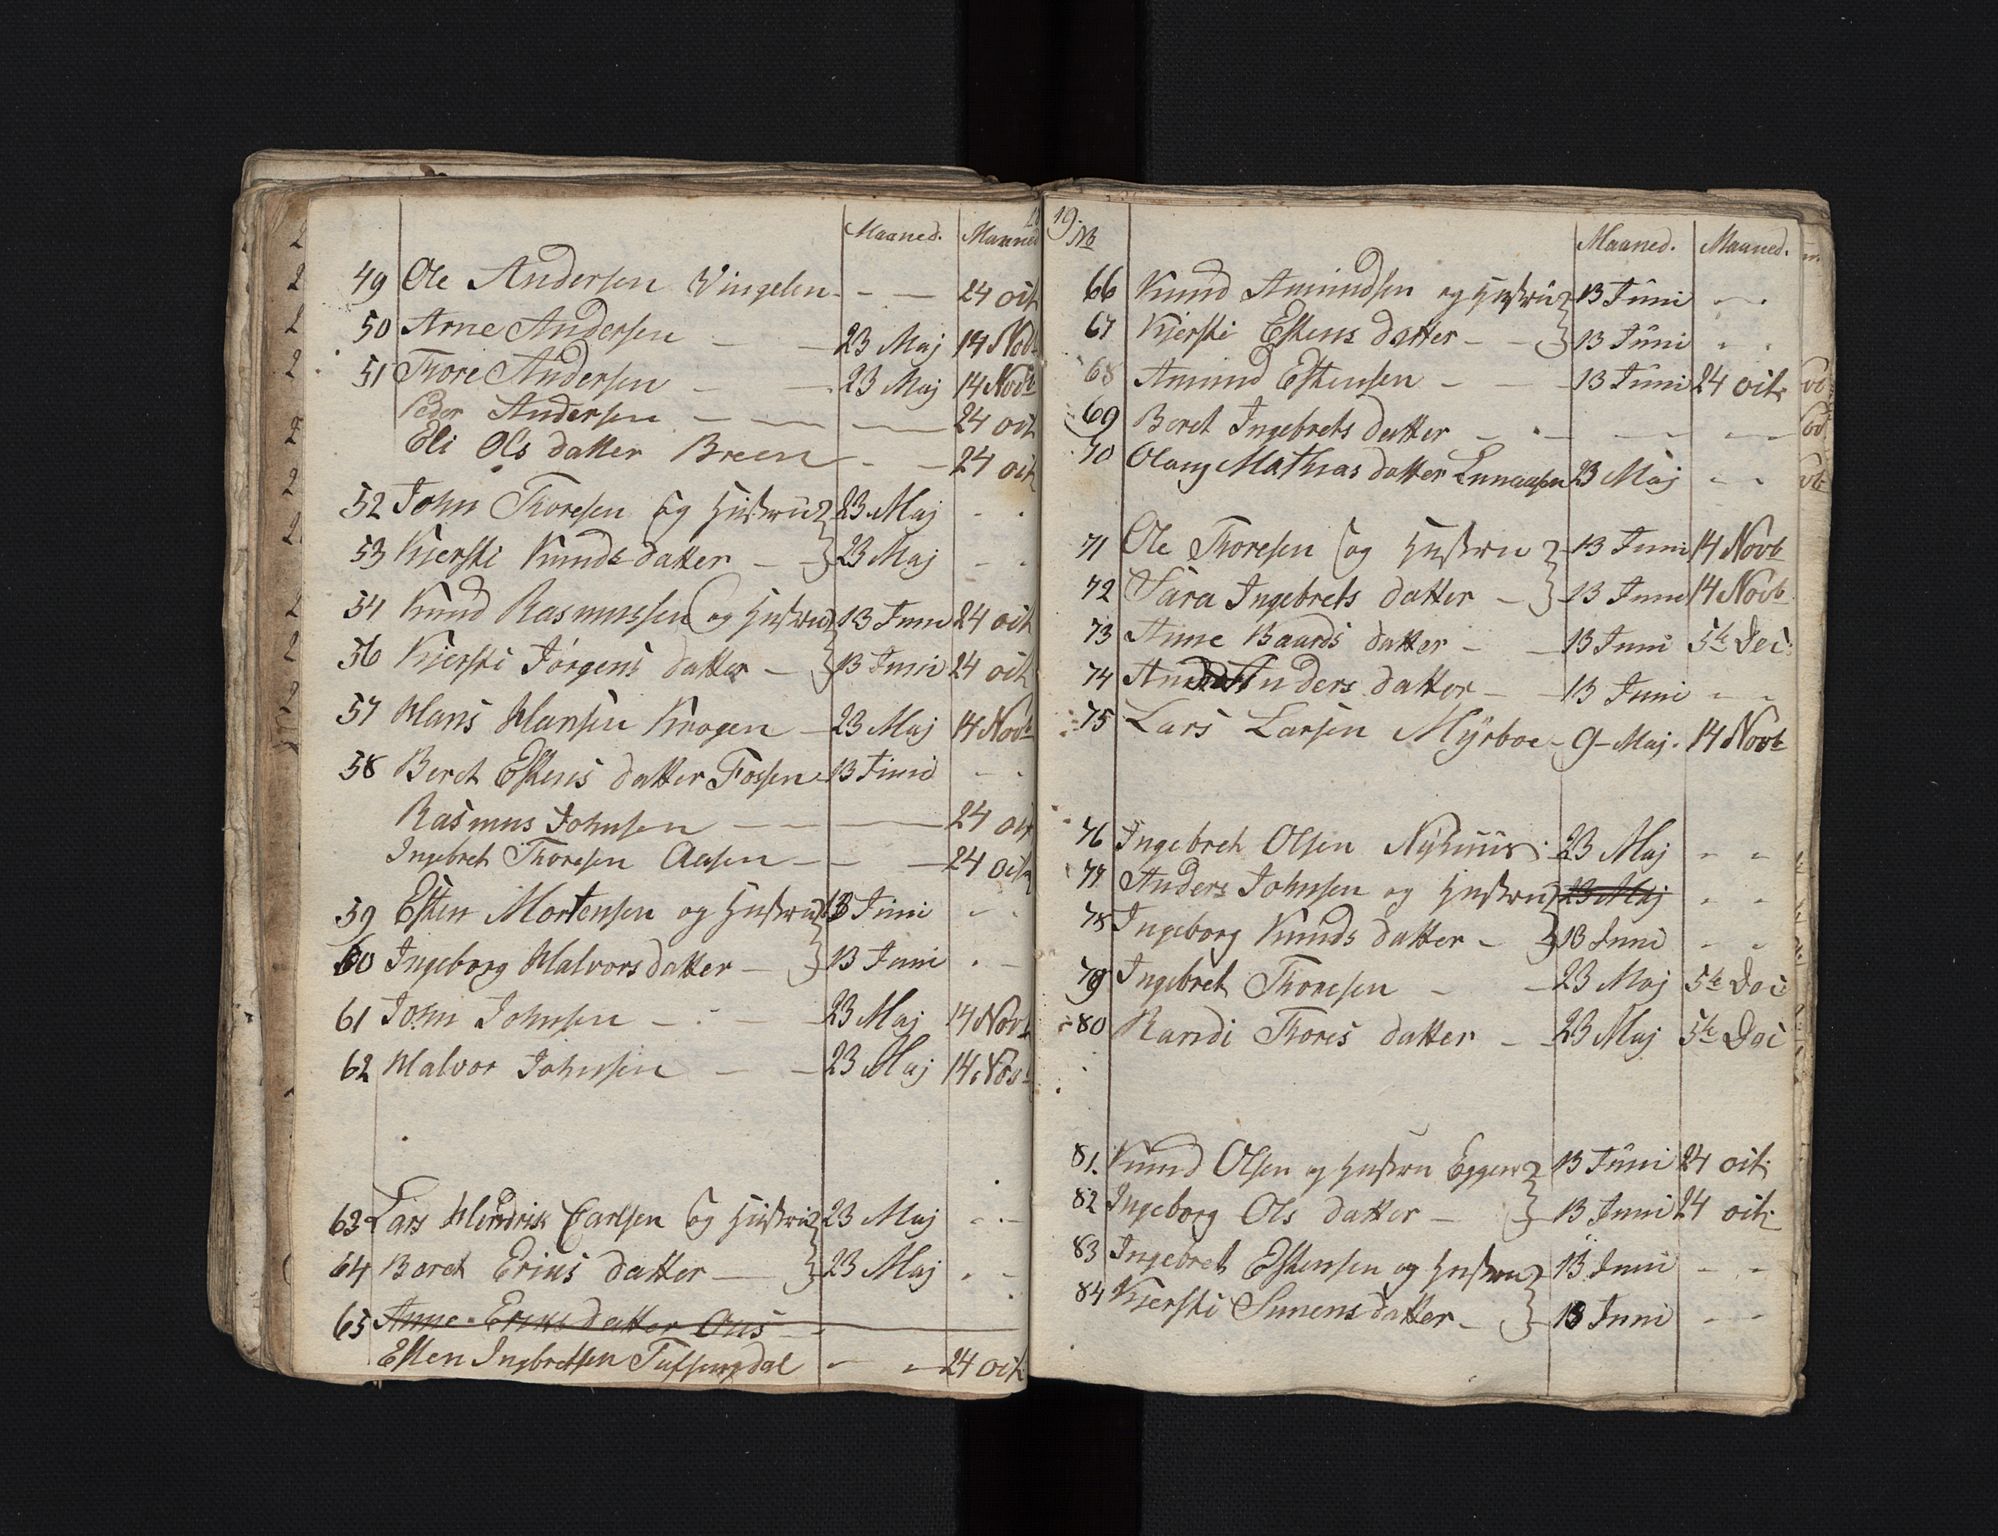 Maaned. Maaned
49 Ole Andersen Vingelen - - - 24 oct
50 Arne Andersen - - 23 Maj 14 Novb
51 Thore Andersen - - 23 Maj 14 Novb
Peder Andersen - - - 24 oct
Eli Ols datter Breen - - 24 oct
52 John Thoresen og Hustru 23 Maj - -
53 Kjersti Knuds datter - - 23 Maj - -
54 Knud Rasmussen og Hustru 13 Juni 24 oct
56 Kjersti Jörgens datter - 13 Juni 24 oct
57 Hans Hansen Krogen - 23 Maj 14 Novb
58 Beret Estens datter Fossen - 13 Juni - -
Rasmus Johnsen - - - 24 oct
Ingebret Thoresen Aasen - - - 24 oct
59 Esten Mortensen og Hustru 13 Juni - -
60 Ingeborg Halvors datter - 13 Juni - -
61 John Johnsen - - - 23 Maj 14 Novb
62 Halvor Johnsen - - 23 Maj 14 Novb
63 Lars Hendrik Carlsen og Hustru 23 Maj - -
64 Beret Erius datter - 23 Maj - -
65 Anne Eriks datter Aas - -
Esten Ingbretsen Tufsingdal - - 24 oct
19. No Maaned. Maaned.
66 Knud Amundsen og Hustru 13 Juni - -
67 Kjersti Estens datter - - 13 Juni - -
68 Amund Estensen - - 13 Juni 24 oct
69 Beret Ingebrets datter - - - - -
70 Olaug Mathias datter Lunaasen 23 Maj - -
71 Ole Thoresen og Hustru 13 Juni 14 Novb
72 Sara Ingebrets datter - 13 Juni 14 Novb
73 Anne Baards datter - - 13 Juni 5te Dec:
74 Anders datter - - 13 Juni - -
75 Lars Larsen Myrboe - 9 - Maj. 14 Novb
76 Ingebret Olsen Nyhuus. 23 Maj - -
77 Anders Johnsen og Hustru 23 Maj - -
78 Ingeborg Knuds datter - 13 Juni - -
79 Ingebret Thoresen - - 23 Maj 5te Dec
80 Randi Thores datter - - 23 Maj 5te Dec
81. Knud Olsen og Hustru Eggen 13 Juni 24 oct.
82 Ingeborg Ols datter - - 13 Juni 24 oct.
83 Ingebret Estensen og Hustru 13 Juni - -
84 Kjersti Simens datter - - 13 Juni - -